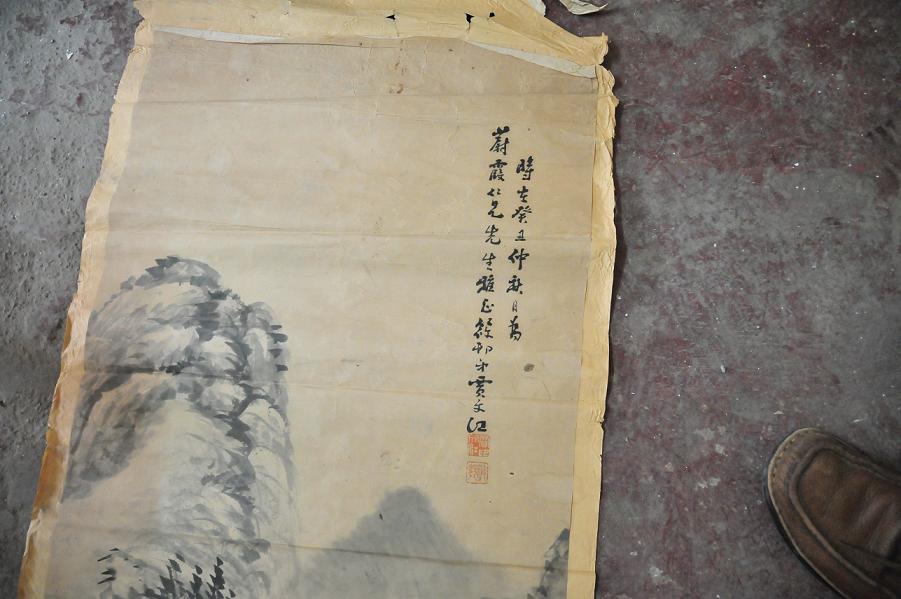 時在癸丑仲秋月為
蔚霞仁兄先生雅正 弟賈文江